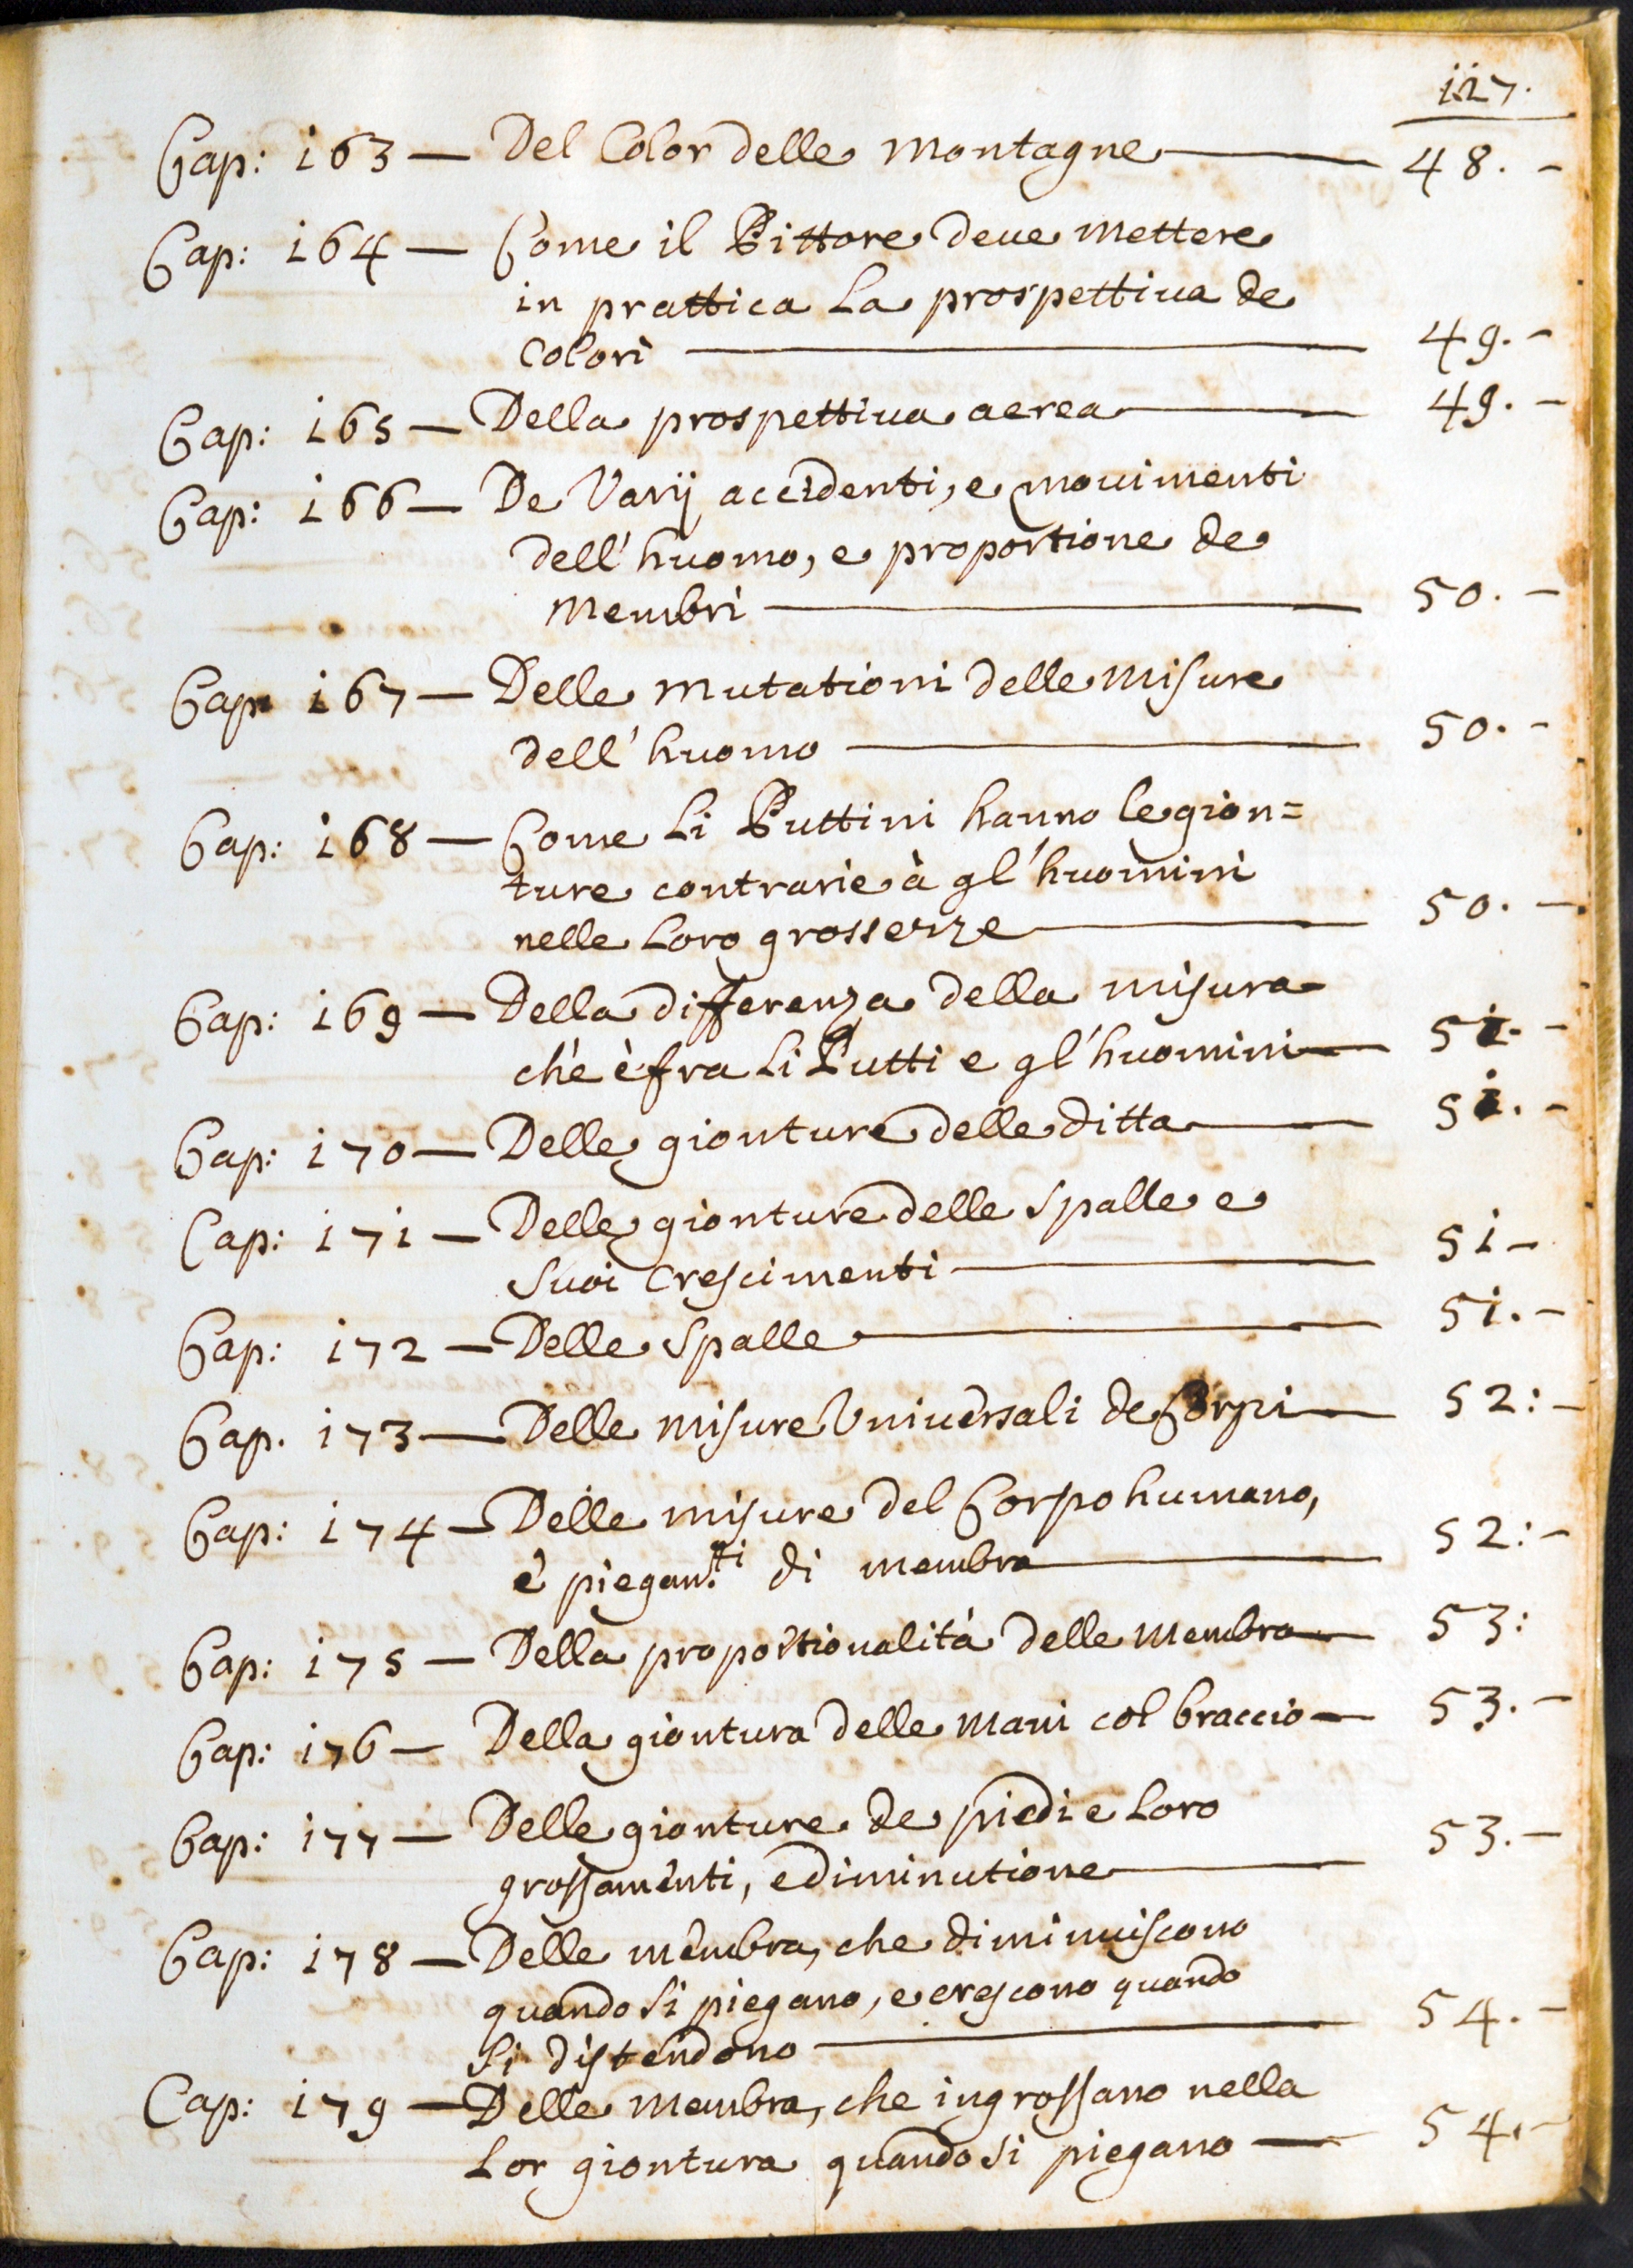 127.
Cap: 163 — Del Color delle montagne — 48. -
Cap: 164 — Come il Pittore deue mettere
in prattica la prospettiua de
Colori — 49. -
Cap: 165 — Della prospettiua aerea — 49. -
Cap: 166 — De Varij accidenti, e mouimenti
dell'huomo, e proportione de
membri — 50. -
Cap: 167 — Delle mutationi delle misure
dell'huomo — 50. -
Cap: 168 — Come li Puttini hanno le gion=
ture contrarie à gl'huomini
nelle loro grossezze — 50. -
Cap: 169 — Della differenza della misura
ch'è è fra li Putti e gl'huomini — 51. -
Cap: 170 — Delle gionture delle ditta — 51. -
Cap: 171 — Delle gionture delle spalle e
suoi crescimenti — 51 -
Cap: 172 — Delle spalle — 51. -
Cap. 173 — Delle misure Vniuersali de Corpi — 52: -
Cap: 174 — Delle misure del Corpo humano,
è piegam.ti di membra — 52: -
Cap: 175 — Della proportionalità delle membra — 53:
Cap: 176 — Della giontura delle mani col braccio — 53. -
Cap: 177 — Delle gionture de piedi e loro
grossamenti, e diminutione — 53. -
Cap: 178 — Delle membra, che diminuiscono
quando si piegano, e crescono quando
si distendono — 54. -
Cap: 179 — Delle membra, che ingrossano nella
lor giontura quando si piegano — 54. -